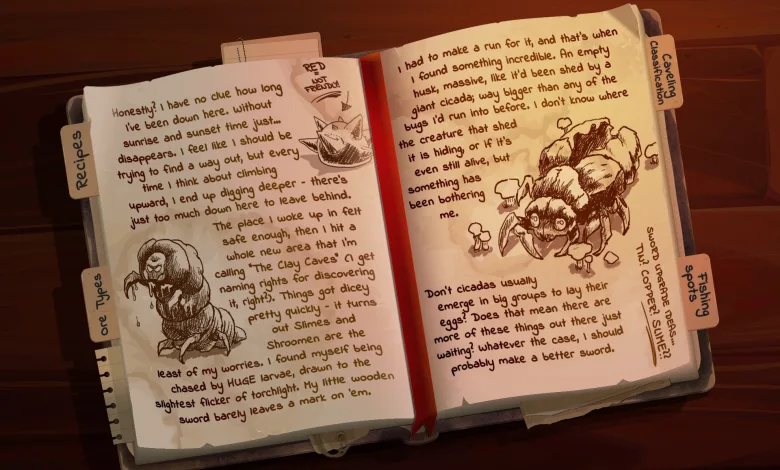 Recipes
Ore Types
Honestly? I have no clue how long
I've been down here. Without
sunrise and sunset time just...
disappears. I feel like I should be
trying to find a way out, but every
time I think about climbing
upward, I end up digging deeper - there's
just too much down here to leave behind.
RED
=
NOT
FRIENDLY!
The place I woke up in felt
safe enough, then I hit a
whole new area that I'm
calling "The Clay Caves" (I get
naming rights for discovering
it, right?). Things got dicey
pretty quickly - it turns
out Slimes and
Shroomen are the
least of my worries. I found myself being
chased by HUGE larvae, drawn to the
slightest flicker of torchlight. My little wooden
sword barely leaves a mark on 'em.
I had to make a run for it, and that's when
I found something incredible. An empty
husk, massive, like it'd been shed by a
giant cicada; way bigger than any of the
bugs I'd run into before. I don't know where
the creature that shed
it is hiding, or if it's
even still alive, but
something has
been bothering
me.
Don't cicadas usually
emerge in big groups to lay their
eggs? Does that mean there are
more of these things out there just
waiting? Whatever the case, I should
probably make a better sword.
SWORD UPGRADE IDEAS...
TIN? COPPER! SLIME??
Caveling
Classification
Fishing
spots